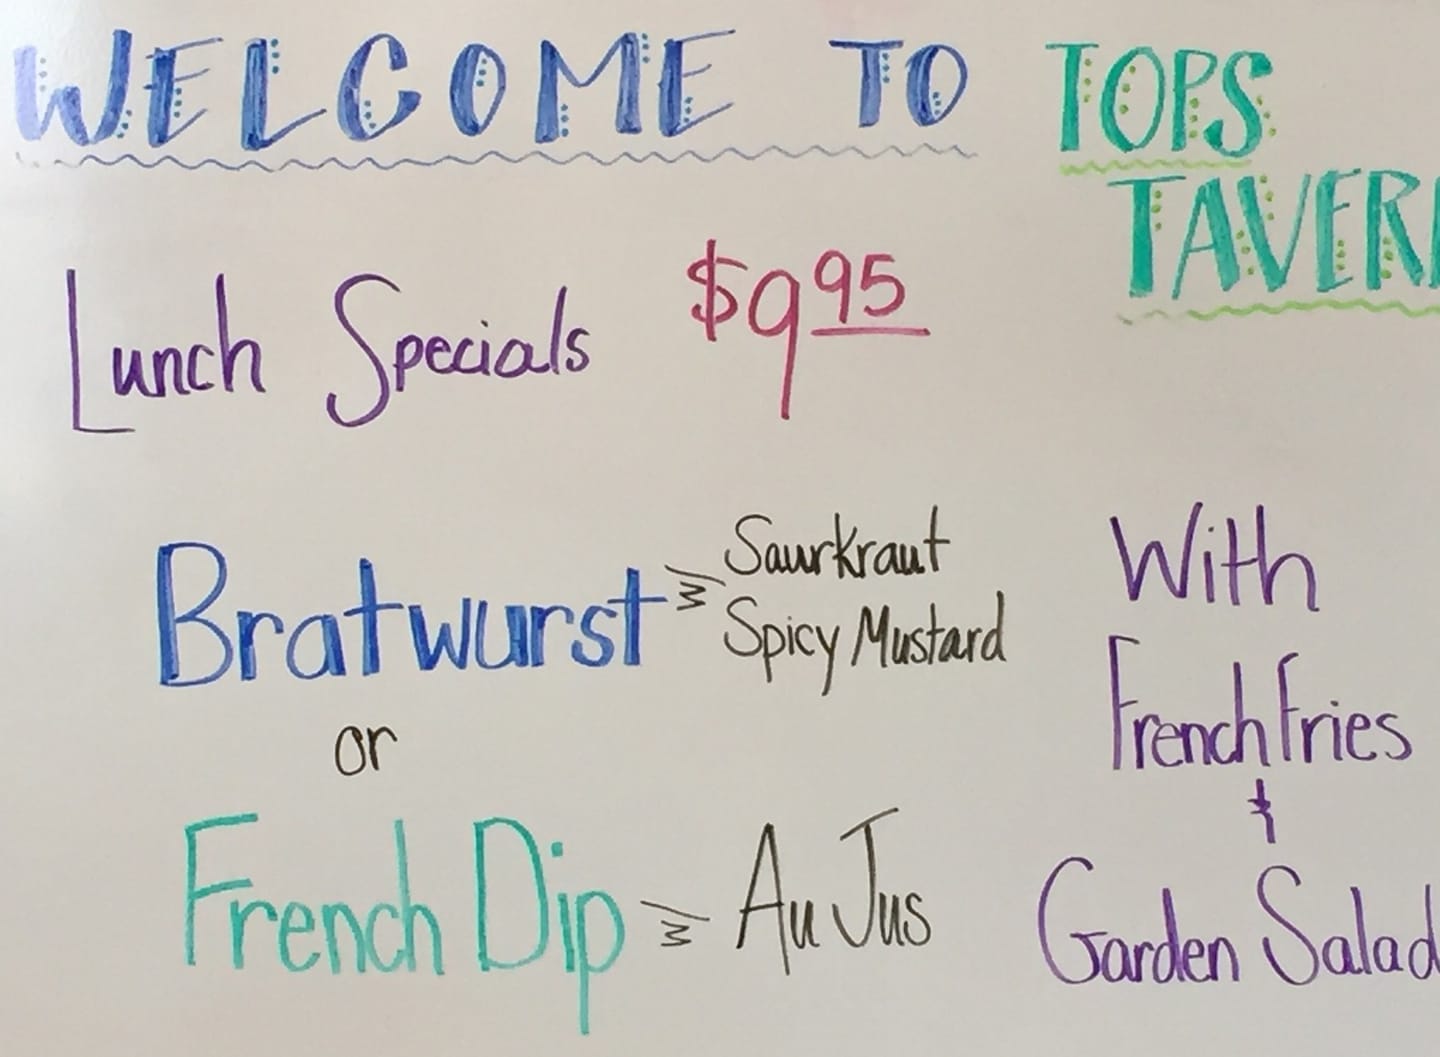 WELCOME TO TOPS
TAVER
Lunch Specials $9 95
Bratwurst w/ Saurkraut
Spicy Mustard
or
French Dip w/ Au Jus
With
French Fries
&
Garden Salad